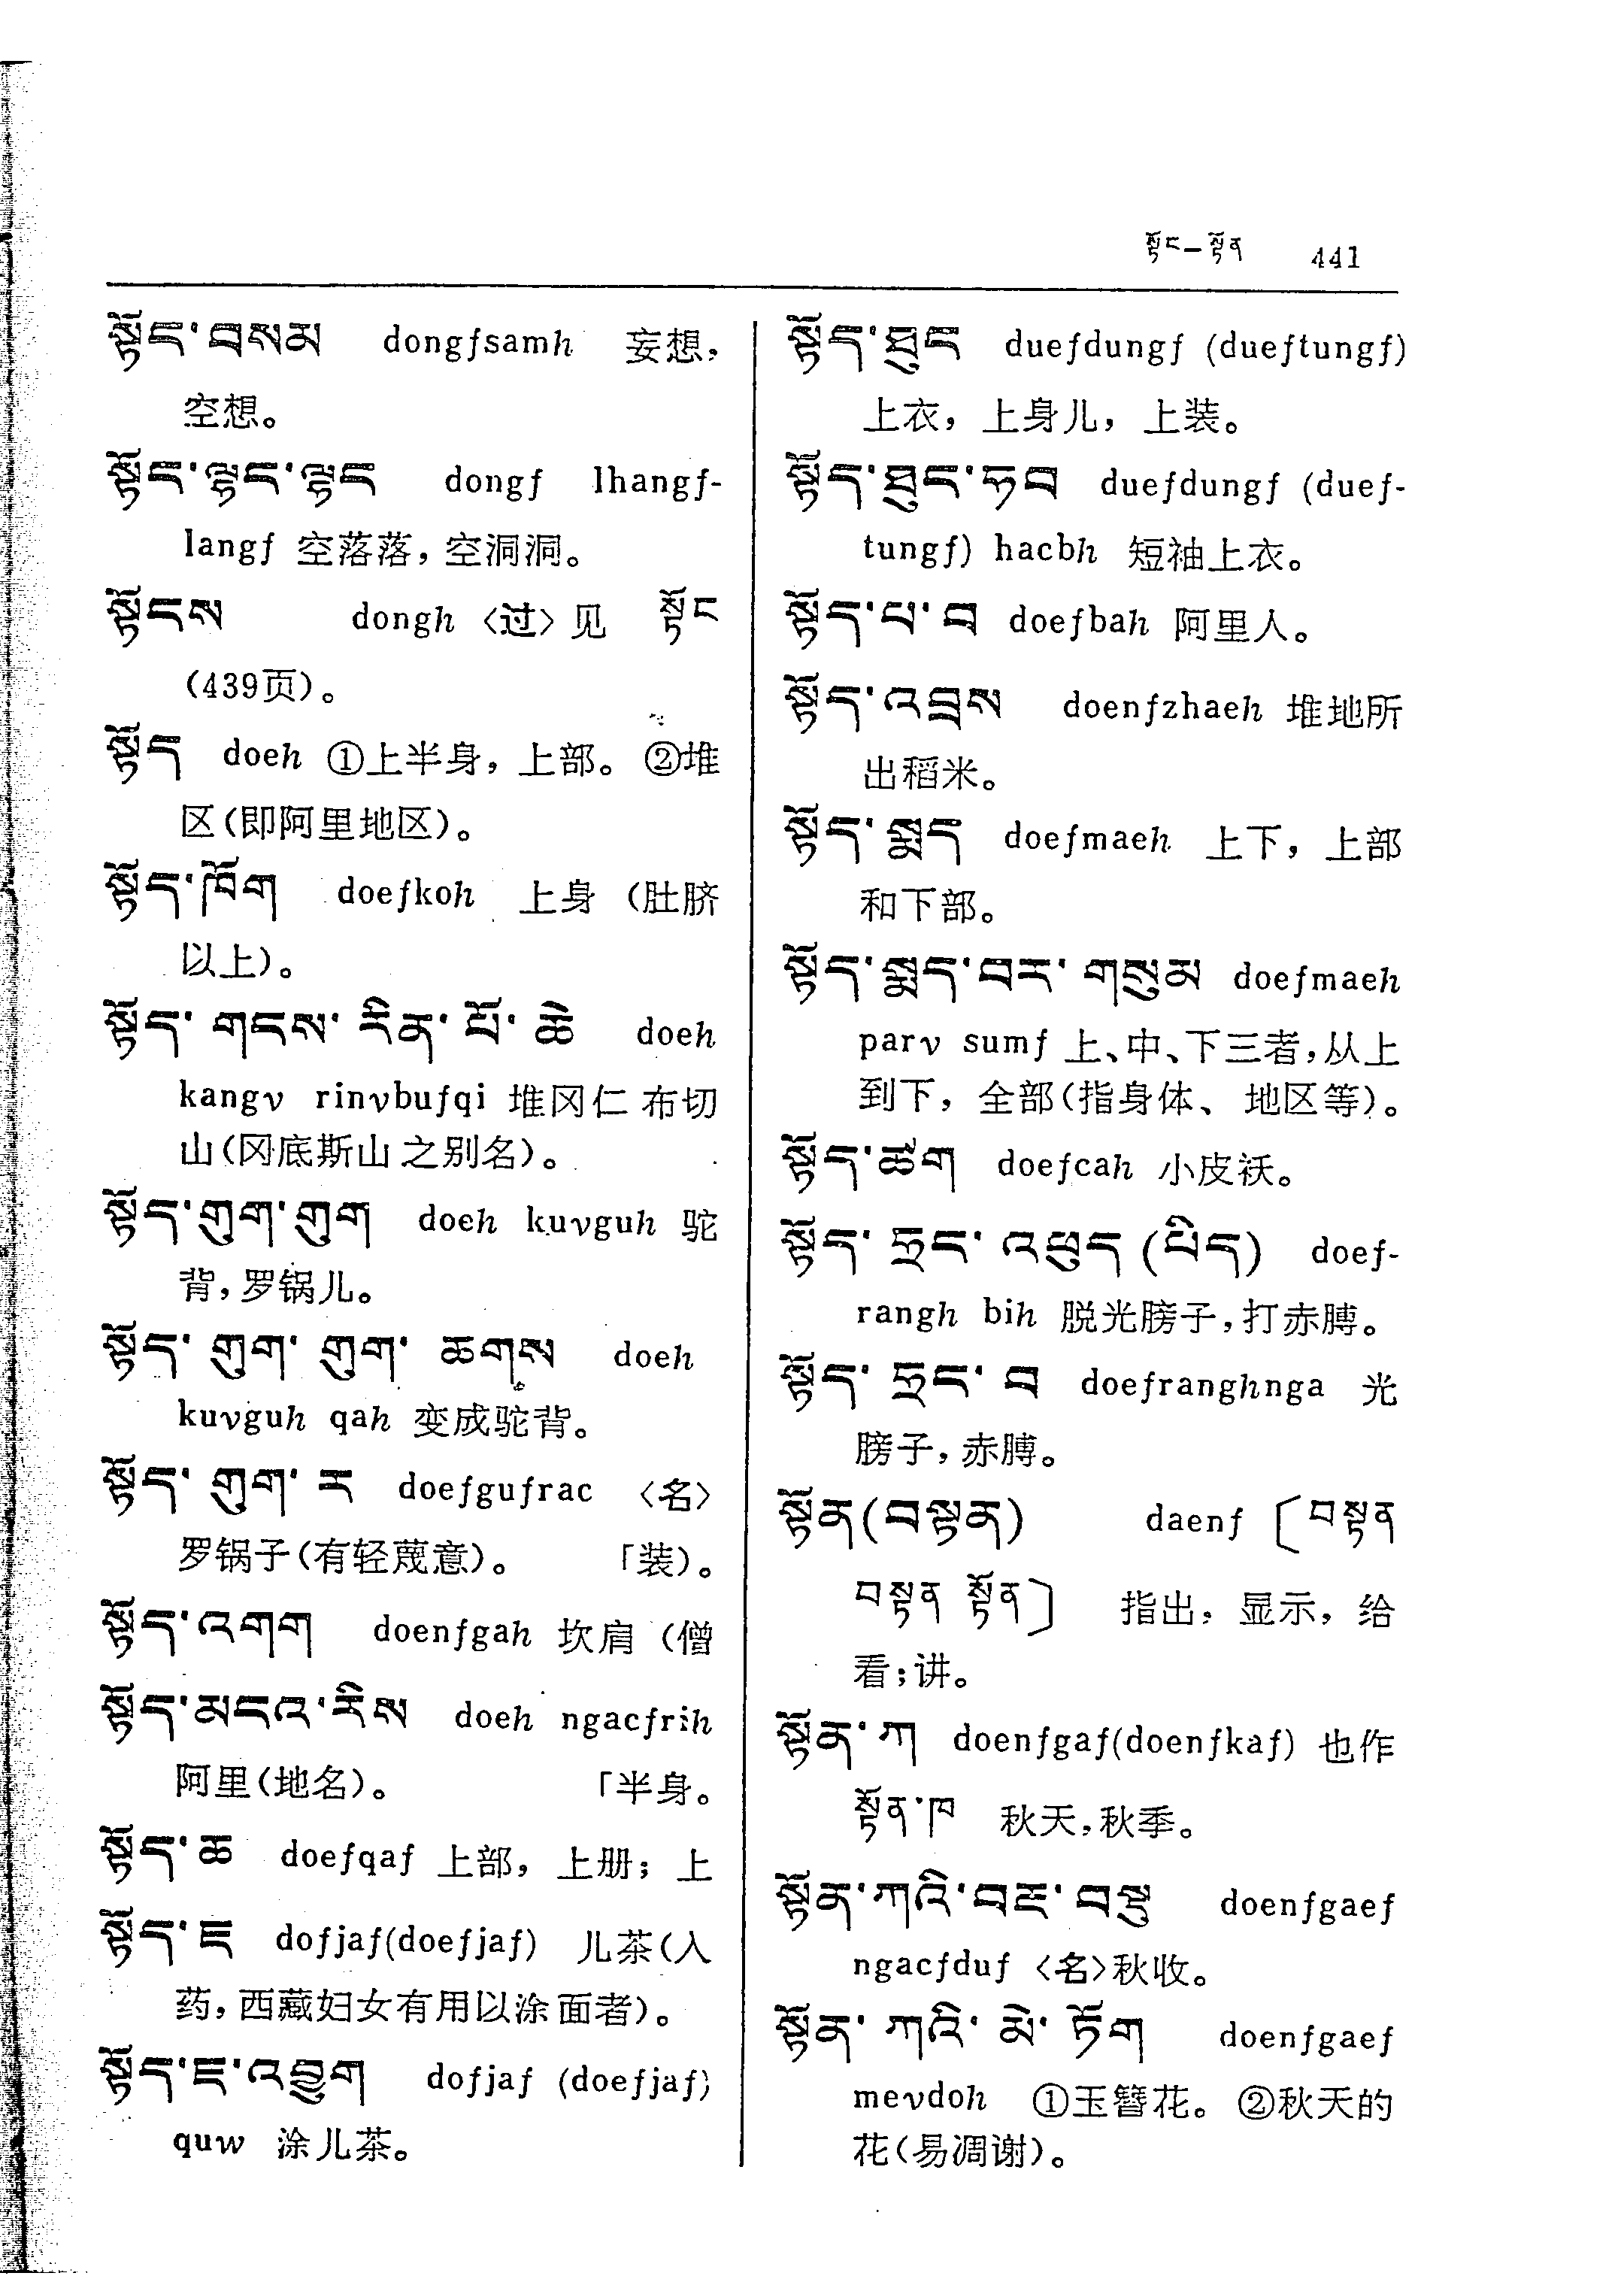 སྟོང—སྟོན 441
སྟོང་བསམ dongfsamh 妄想，
空想。
སྟོང་ལྷང་ལྷང dongf lhangf-
langf 空落落，空洞洞。
སྟོངས dongh 〈过〉见 སྟོང
（439页）。
སྟོད doeh ①上半身，上部。②堆
区（即阿里地区）。
སྟོད་ཁོག doefkoh 上身（肚脐
以上）。
སྟོད་གངས་རིན་པོ་ཆེ doeh
kangv rinvbufqi 堆冈仁布切
山（冈底斯山之别名）。
སྟོད་གུག་གུག doeh kuvguh 驼
背，罗锅儿。
སྟོད་གུག་གུག་ཆགས doeh
kuvguh qah 变成驼背。
སྟོད་གུག་ར doefgufrac 〈名〉
罗锅子（有轻蔑意）。 「装）。
སྟོད་འགག doenfgah 坎肩（僧
སྟོད་མངའ་རིས doeh ngacfrih
阿里（地名）。 「半身。
སྟོད་ཆ doefqaf 上部，上册；上
སྟོད་ཇ dofjaf(doefjaf) 儿茶（入
药，西藏妇女有用以涂面者）。
སྟོད་ཇ་འབྱུག dofjaf (doefjaf)
quw 涂儿茶。
སྟོད་ཐུང duefdungf (dueftungf)
上衣，上身儿，上装。
སྟོད་ཐུང་ཧབ duefdungf (duef-
tungf) hacbh 短袖上衣。
སྟོད་པ་བ doefbah 阿里人。
སྟོད་འབྲས doenfzhaeh 堆地所
出稻米。
སྟོད་སྨད doefmaeh 上下，上部
和下部。
སྟོད་སྨད་བར་གསུམ doefmaeh
parv sumf 上、中、下三者，从上
到下，全部（指身体、地区等）。
སྟོད་ཚག doefcah 小皮袄。
སྟོད་ཧྲང་འཕུད(པིད) doef-
rangh bih 脱光膀子，打赤膊。
སྟོད་ཧྲང་བ doefranghnga 光
膀子，赤膊。
སྟོན(བསྟན) daenf 〔བསྟན
བསྟན སྟོན〕 指出，显示，给
看；讲。
སྟོན་ཀ doenfgaf(doenfkaf) 也作
སྟོན་ཁ 秋天，秋季。
སྟོན་ཀའི་བརྔ་བསྡུ doenfgaef
ngacfduf 〈名〉秋收。
སྟོན་ཀའི་མེ་ཏོག doenfgaef
mevdoh ①玉簪花。②秋天的
花（易凋谢）。